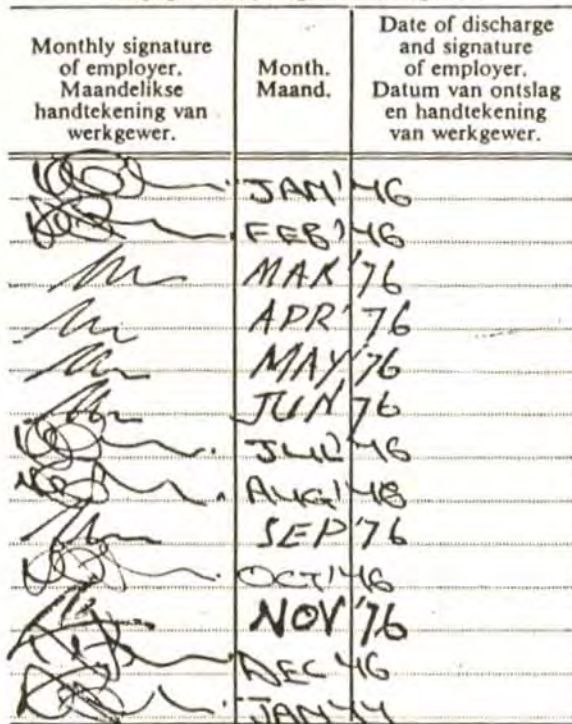 Monthly signature
of employer.
Maandelikse
handtekening van
werkgewer.
Month.
Maand.
Date of discharge
and signature
of employer.
Datum van ontslag
en handtekening
van werkgewer.
JAN'46
FEB'46
MAR'76
APR'76
MAY'76
JUN'76
JUL'46
AUG'48
SEP'76
OCT'46
NOV'76
DEC 46
JAN 44